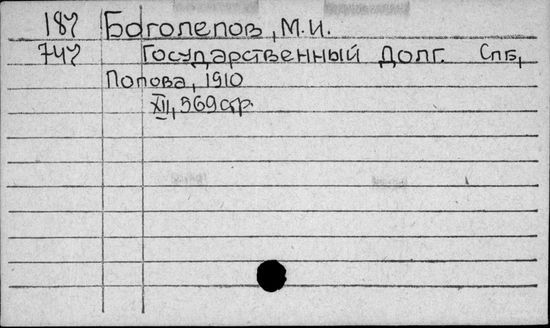 187 Боголепов, М.И.
747 Государственный Долг. Спб,
Попова, 1910
XII, 569 стр.